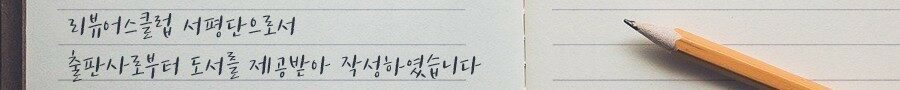 리뷰어스클럽 서평단으로서
출판사로부터 도서를 제공받아 작성하였습니다